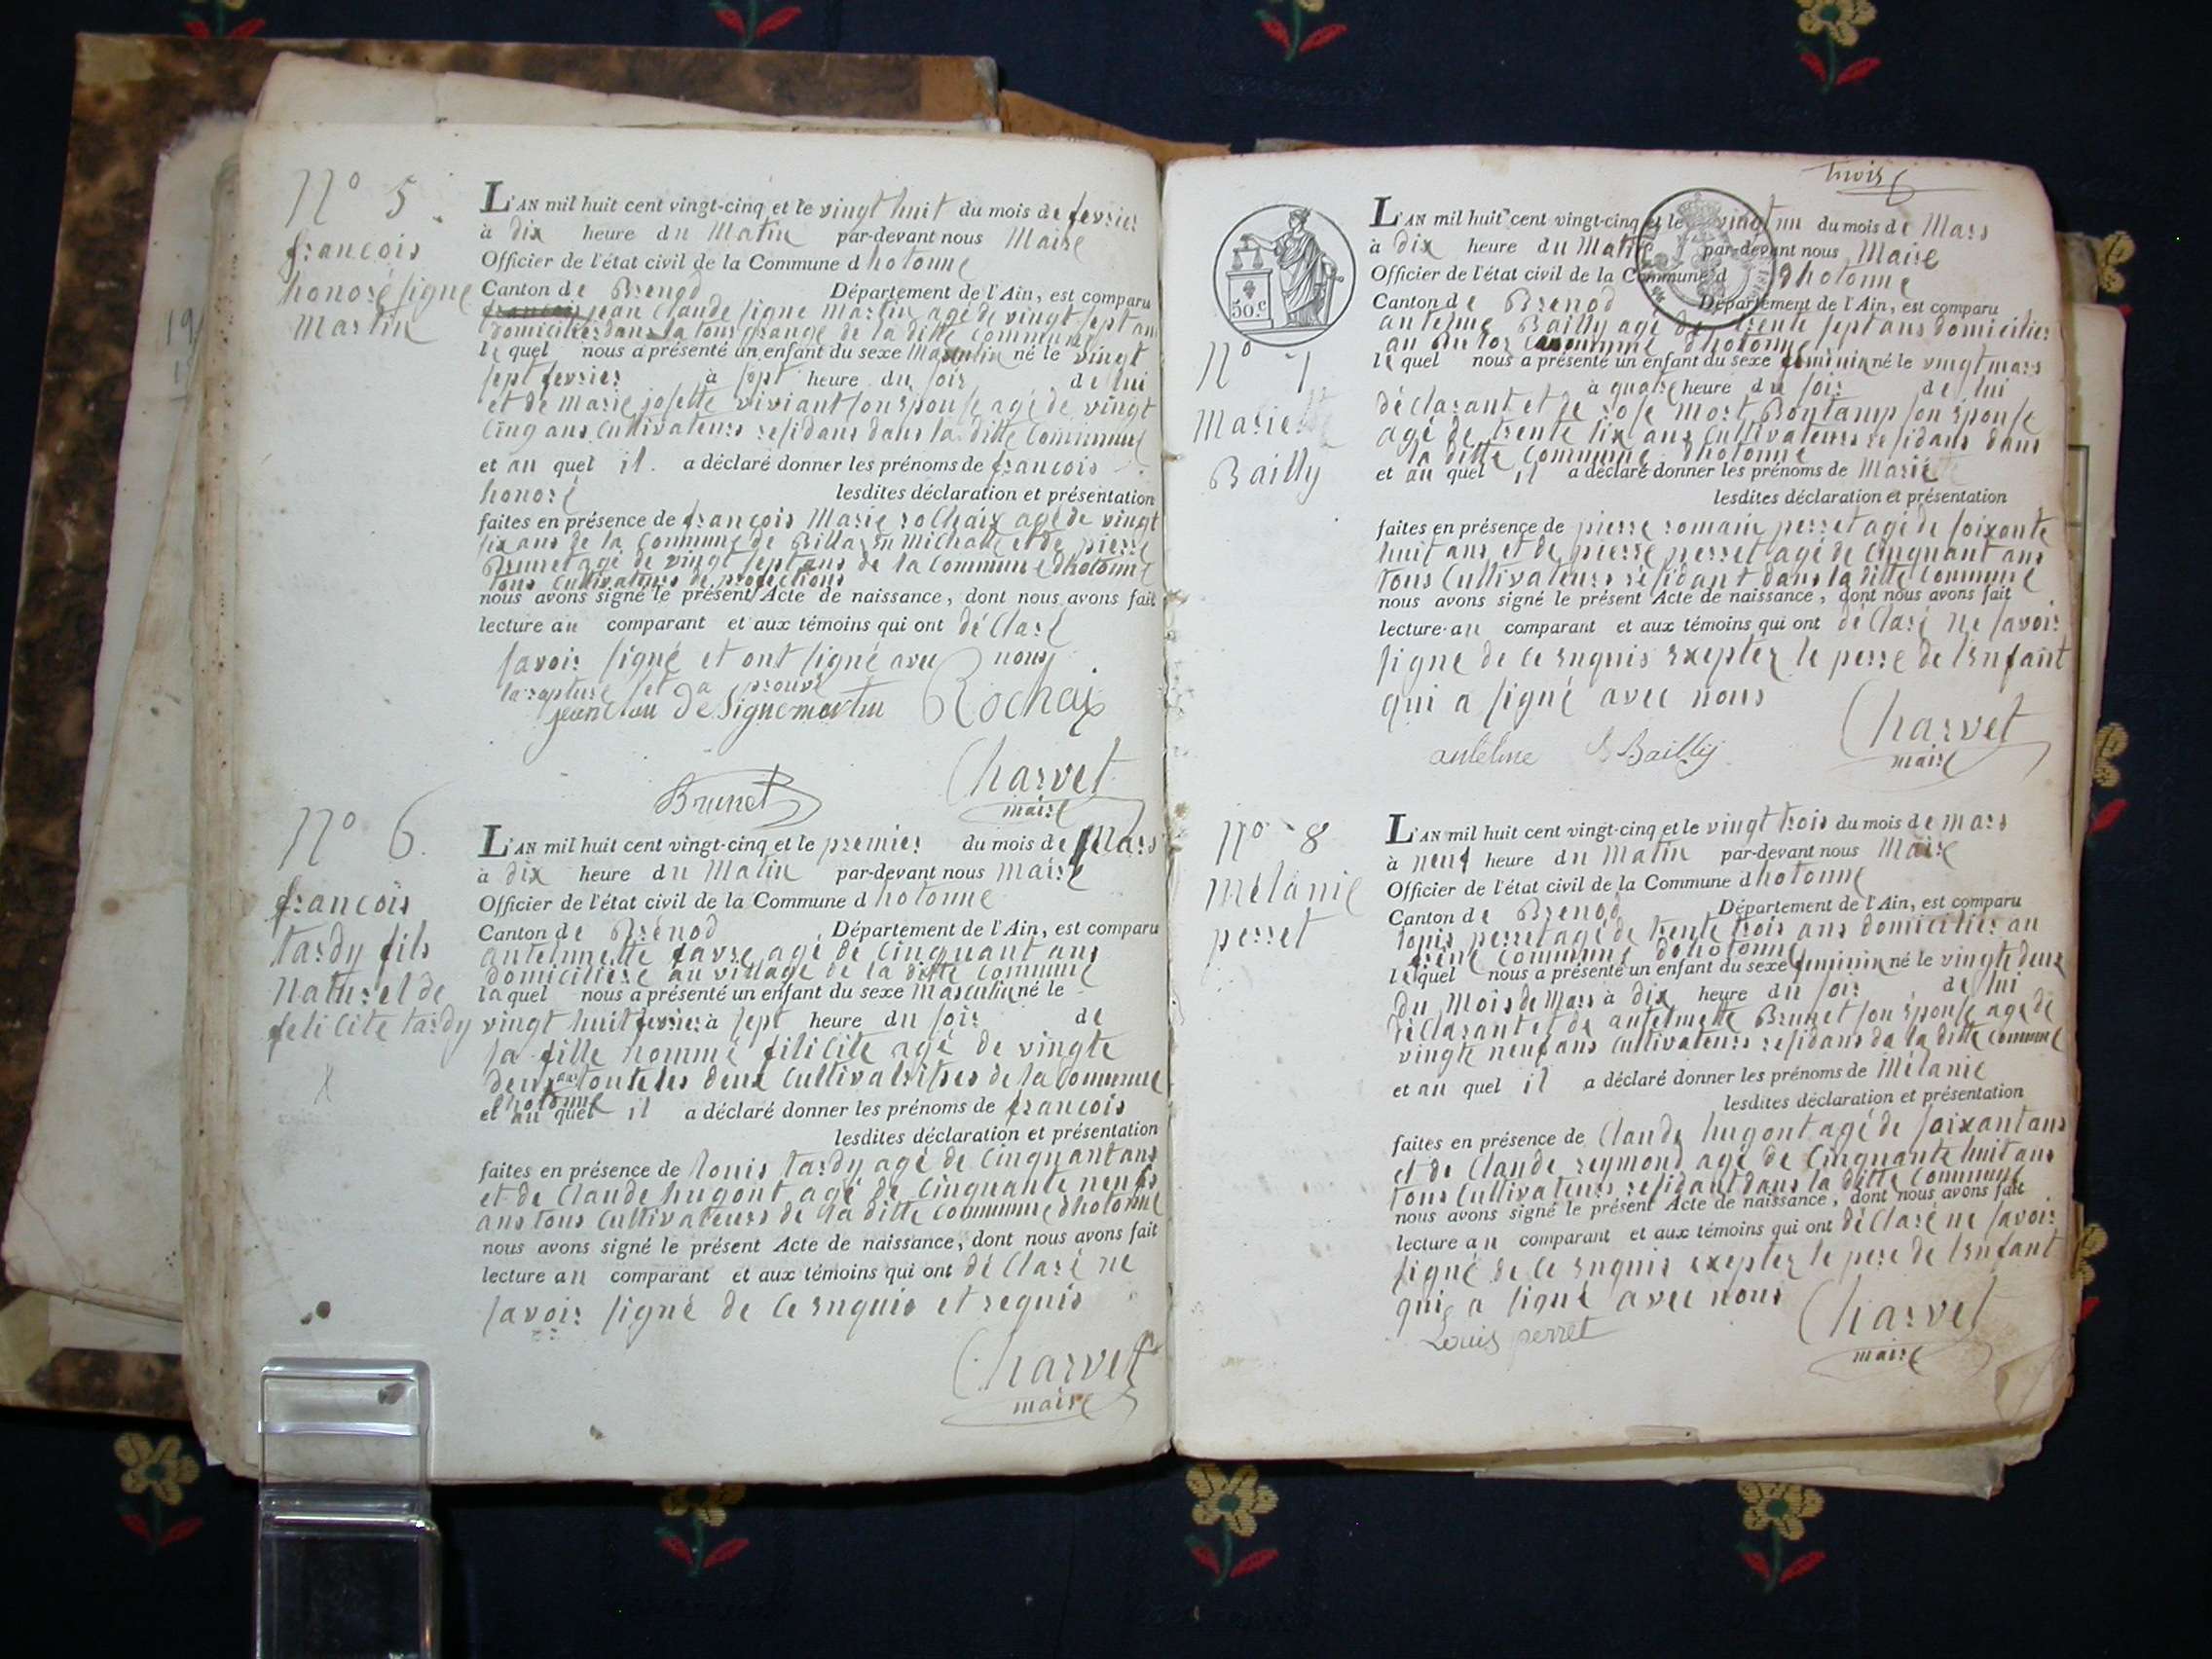 N° 5.
françois
honoré signe
Martin
L'AN mil huit cent vingt-cinq et le vingt huit du mois de fevrier
à dix heure du Matin par-devant nous Maire
Officier de l'état civil de la Commune d hotonne
Canton de Brenod Département de l'Ain, est comparu
jean Claude signe Martin agé de vingt sept ans
domicilier dans la grange de la ditte Commune
le quel nous a présenté un enfant du sexe Masculin né le vingt
sept fevrier à sept heure du soir de lui
et de marie josette viviant son Epouse agé de vingt
Cinq ans Cultivateurs residans dans la ditte Commune
et au quel il a déclaré donner les prénoms de françois
honoré lesdites déclaration et présentation
faites en présence de françois Marie rochaix agé de vingt
six ans de la Commune de Billa En Michaille et de pierre
Brunet agé de vingt sept ans de la Commune dhotonne
tous Cultivateurs de profections
nous avons signé le présent Acte de naissance, dont nous avons fait
lecture au comparant et aux témoins qui ont déClaré
savoir signé et ont signé avec nous
la rapture set a prouvé
jean clau De Signemartin Rochaix
Charvet
Brunet maire
N° 6.
françois
tardy fils
Naturel de
felicite tardy
X
L'AN mil huit cent vingt-cinq et le premier du mois de Mars
à dix heure du Matin par-devant nous maire
Officier de l'état civil de la Commune d hotonne
Canton de Brénod Département de l'Ain, est comparu
antelmette favre agé de Cinquant ans
domiciliere au village de la ditte Commune
laquel nous a présenté un enfant du sexe masculin né le
vingt huit fevrier à sept heure du soir de
sa fille nommé filicite agé de vingte
deux ans toute les deux Cultivatrises de la Commune
dhotonne
et au quel il a déclaré donner les prénoms de françois
lesdites déclaration et présentation
faites en présence de louis tardy agé de Cinquant ans
et de Claude hugont agé de Cinquante neufs
ans tous Cultivateurs de la ditte Commune dhotonne
nous avons signé le présent Acte de naissance, dont nous avons fait
lecture au comparant et aux témoins qui ont déClaré ne
savoir signé de Ce Enquis et requis
Charvet
maire
trois
50.c
N° 7
Marie
Bailly
L'AN mil huit cent vingt-cinq et le vingt un du mois de Mars
à dix heure du Matin par-devant nous Maire
Officier de l'état civil de la Commune d dhotonne
Canton de Brenod Département de l'Ain, est comparu
antelme Bailly agé de trente sept ans domicilier
au Commune dhotonne
le quel nous a présenté un enfant du sexe feminin né le vingt mars
à quatre heure du soir de lui
déclarant et de rose Mort Bontamp son Epouse
agé de trente six ans Cultivateurs residans dans
la ditte Commune dhotonne
et au quel il a déclaré donner les prénoms de Marie
lesdites déclaration et présentation
faites en présence de pierre romain perret agé de soixante
huit ans et de pierre perret agé de Cinquant ans
tous Cultivateurs residant dans la ditte Commune
nous avons signé le présent Acte de naissance, dont nous avons fait
lecture au comparant et aux témoins qui ont déClaré ne savoir
signe de Ce Enquis Exepter le perre de lEnfant
qui a signé avec nous
Charvet
antelme Bailly maire
N° 8
Mélanie
perret
L'AN mil huit cent vingt-cinq et le vingt trois du mois de mars
à neuf heure du Matin par-devant nous Maire
Officier de l'état civil de la Commune d hotonne
Canton de Brenod Département de l'Ain, est comparu
louis perret agé de trente trois ans domicilier au
Commune dehotonne
le quel nous a présenté un enfant du sexe feminin né le vingte deux
du Mois de Mars à dix heure du soir de lui
déclarant et de antelmette Brunet son Epouse agé de
vingte neuf ans Cultivateurs residans da la ditte Commune
et au quel il a déclaré donner les prénoms de Mélanie
lesdites déclaration et présentation
faites en présence de Claude hugont agé de soixant ans
et de Claude reymond agé de Cinquante huit ans
tous Cultivateurs residant dans la ditte Commune
nous avons signé le présent Acte de naissance, dont nous avons fait
lecture au comparant et aux témoins qui ont déClaré ne savoir
signé de Ce Enquis exepter le pere de lEnfant
qui a signé avec nous Charvet
Louis perret maire